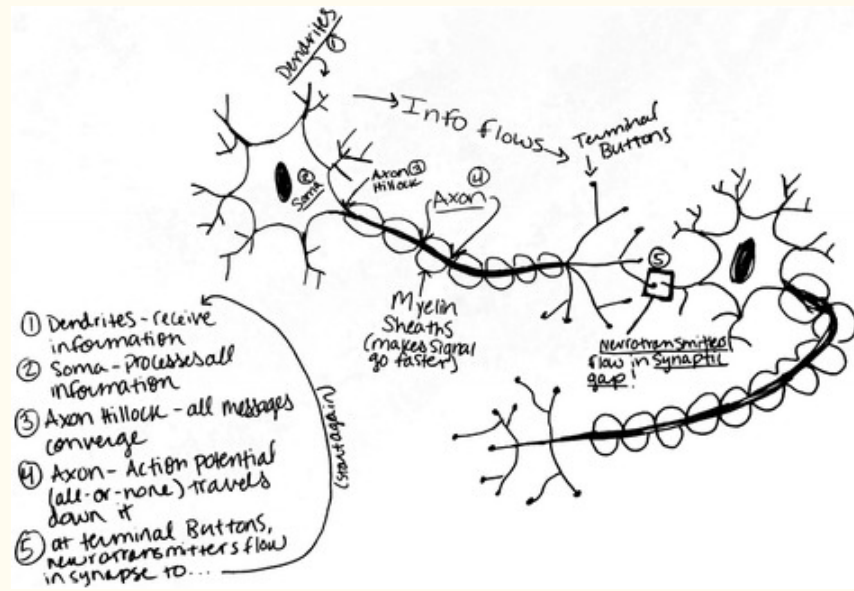 Dendrites
①
→ Info flows →
Terminal
Buttons
②
Soma
Axon ③
Hillock
④
Axon
⑤
Myelin
Sheaths
(makes signal
go faster)
Neurotransmitters
flow in synaptic
gap!
① Dendrites - receive
information
② Soma - Processes all
information
③ Axon Hillock - all messages
converge
④ Axon - Action potential
(all-or-none) travels
down it
⑤ at terminal Buttons,
neurotransmitters flow
in synapse to...
(start again)